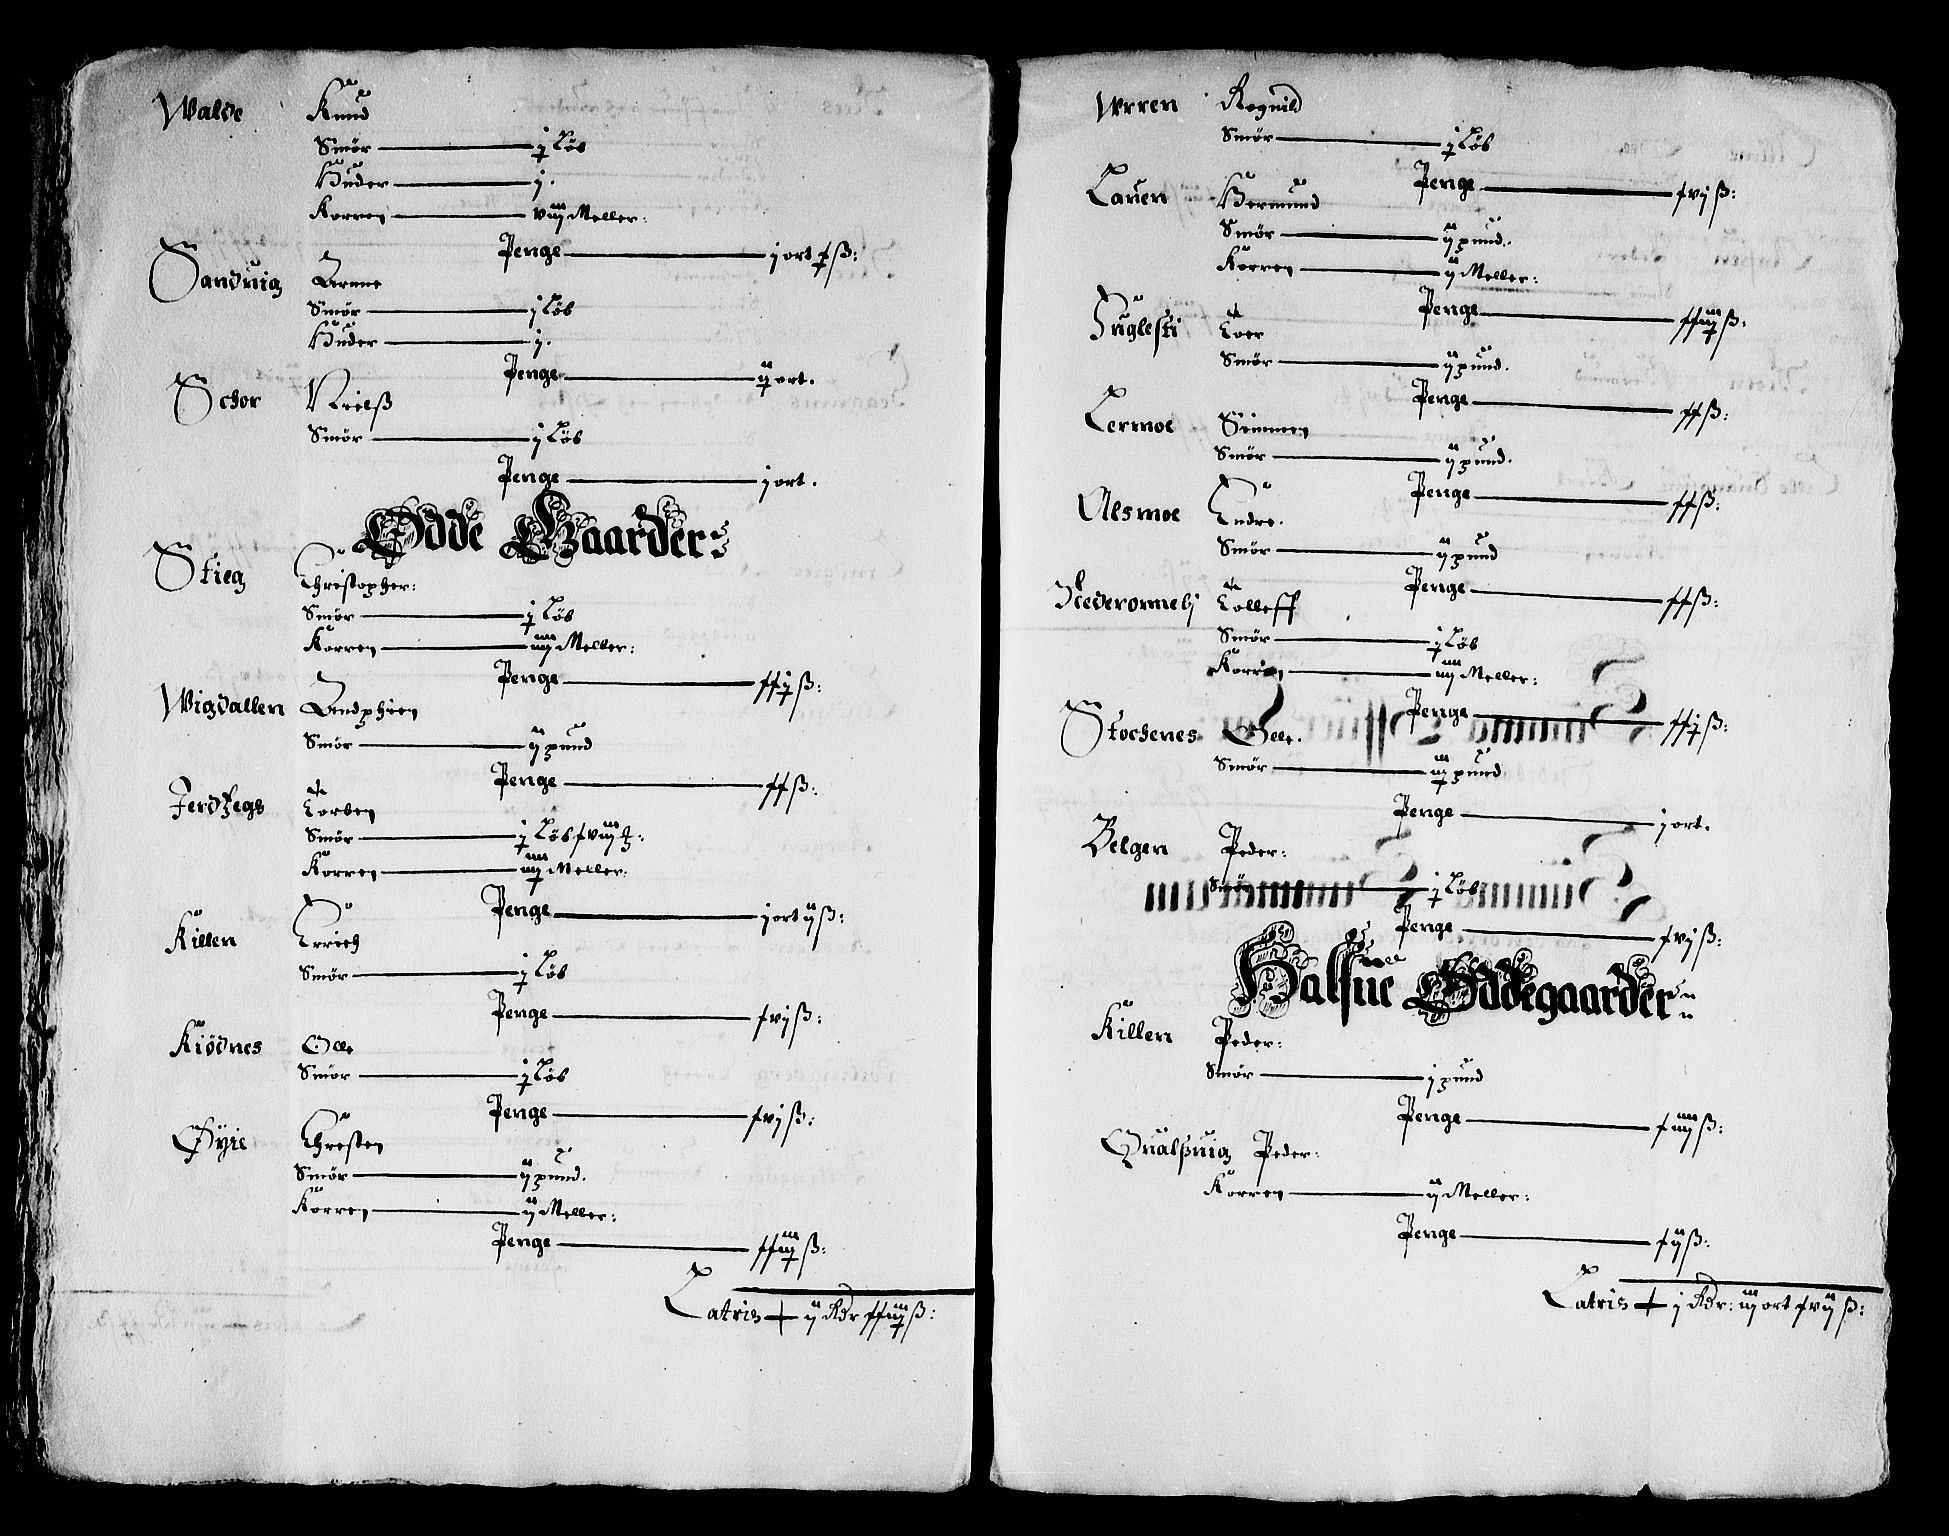 Walde Knud
Smör j Löb
Huder j.
Korren viij Meller:
Penge j ort f ß:
Sanduig Arnne
Smör j Löb
Huder j.
Penge ij ort.
Schor Nielß
Smör j Löb
Penge j ort.
Ødde Gaarder:
Stieg Christopher:
Smör j Löb
Korren iiij Meller:
Penge ffj ß:
Wigdallen
Smör ij pund
Penge ff ß:
Torben
Smör j Löb fviij
Korren iiij Meller:
Penge j ort ij ß:
Killen Errich
Smör j Löb
Penge fvj ß:
Kiödnes Olle
Smör j Löb
Penge fvj ß:
Øyie Christen
Smör ij pund.
Korren ij Meller:
Penge ffiij ß:
Latris ij Rdr ffiij ß:
Vrren Rognild
Smör j Löb
Penge fvj ß:
Lauen Hermund
Smör ij pund.
Korren ij Meller:
Penge ffiij ß:
Fuglesti Toer
Smör ij pund.
Penge ff ß:
Lermoe Simmen
Smör ij pund.
Penge ff ß:
Alsmoe Endre.
Smör ij pund
Penge ff ß:
Tolleff
Smör j Löb
Korren iiij Meller:
Penge ffj ß:
Stochenes Olle.
Smör iij pund
Penge j ort.
Belgen Peder:
Smör j Löb
Penge fvj ß:
Halfue Øddegaarder
Killen Peder:
Smör j pund
Penge fiiij ß:
Qualßuig Peder:
Korren ij Meller:
Penge fij ß:
Latris j Rdr: iij ort fvij ß: